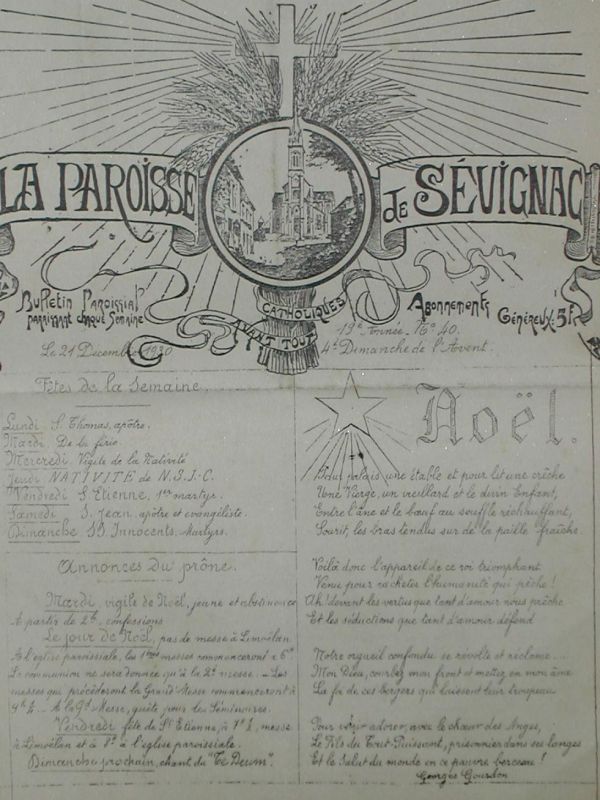 LA PAROISSE de SÉVIGNAC
Bulletin Paroissial
paraissant chaque Semaine
CATHOLIQUES
AVANT TOUT
Abonnements
Généreux: 5f
Le 21 Décembre 1930
13e Année. No 40.
4e Dimanche de l'Avent.
Fêtes de la Semaine.
Lundi S. Thomas, apôtre.
Mardi De la férie.
Mercredi Vigile de la Nativité
Jeudi NATIVITÉ de N.S.J-C.
Vendredi S. Etienne, 1er martyr.
Samedi S. Jean, apôtre et évangéliste.
Dimanche SS. Innocents, Martyrs.
Annonces du prône.
Mardi, vigile de Noël, jeune et abstinence
A partir de 2h. confessions
Le jour de Noël, pas de messe à Limoëlan
A l'église paroissiale, les 1ères messes commenceront à 6h
La communion ne sera donnée qu'à la 2e messe. - Les
messes qui précèderont la Grand-Messe commenceront à
9h ½. - A la Gde Messe, quête pour les Séminaires.
Vendredi fête de St Etienne, à 7h ½, messe
à Limoëlan et à 8h à l'église paroissiale.
Dimanche prochain, chant du "Te Deum".
Noël.
Pour palais une étable et pour lit une crèche
Une Vierge, un vieillard et le divin Enfant,
Entre l'âne et le bœuf au souffle réchauffant,
Sourit, les bras tendus sur de la paille fraîche.
Voilà donc l'appareil de ce roi triomphant
Venu pour racheter l'humanité qui pèche!
Ah! devant les vertus que tant d'amour nous prêche
Et les séductions que tant d'amour défend
Notre orgueil confondu se révolte et réclame...
Mon Dieu, courbez mon front et mettez en mon âme
La foi de ces bergers qui laissent leur troupeau
Pour venir adorer, avec le chœur des Anges,
Le Fils du Tout-Puissant, prisonnier dans ses langes
Et le Salut du monde en ce pauvre berceau
Georges Gourdon